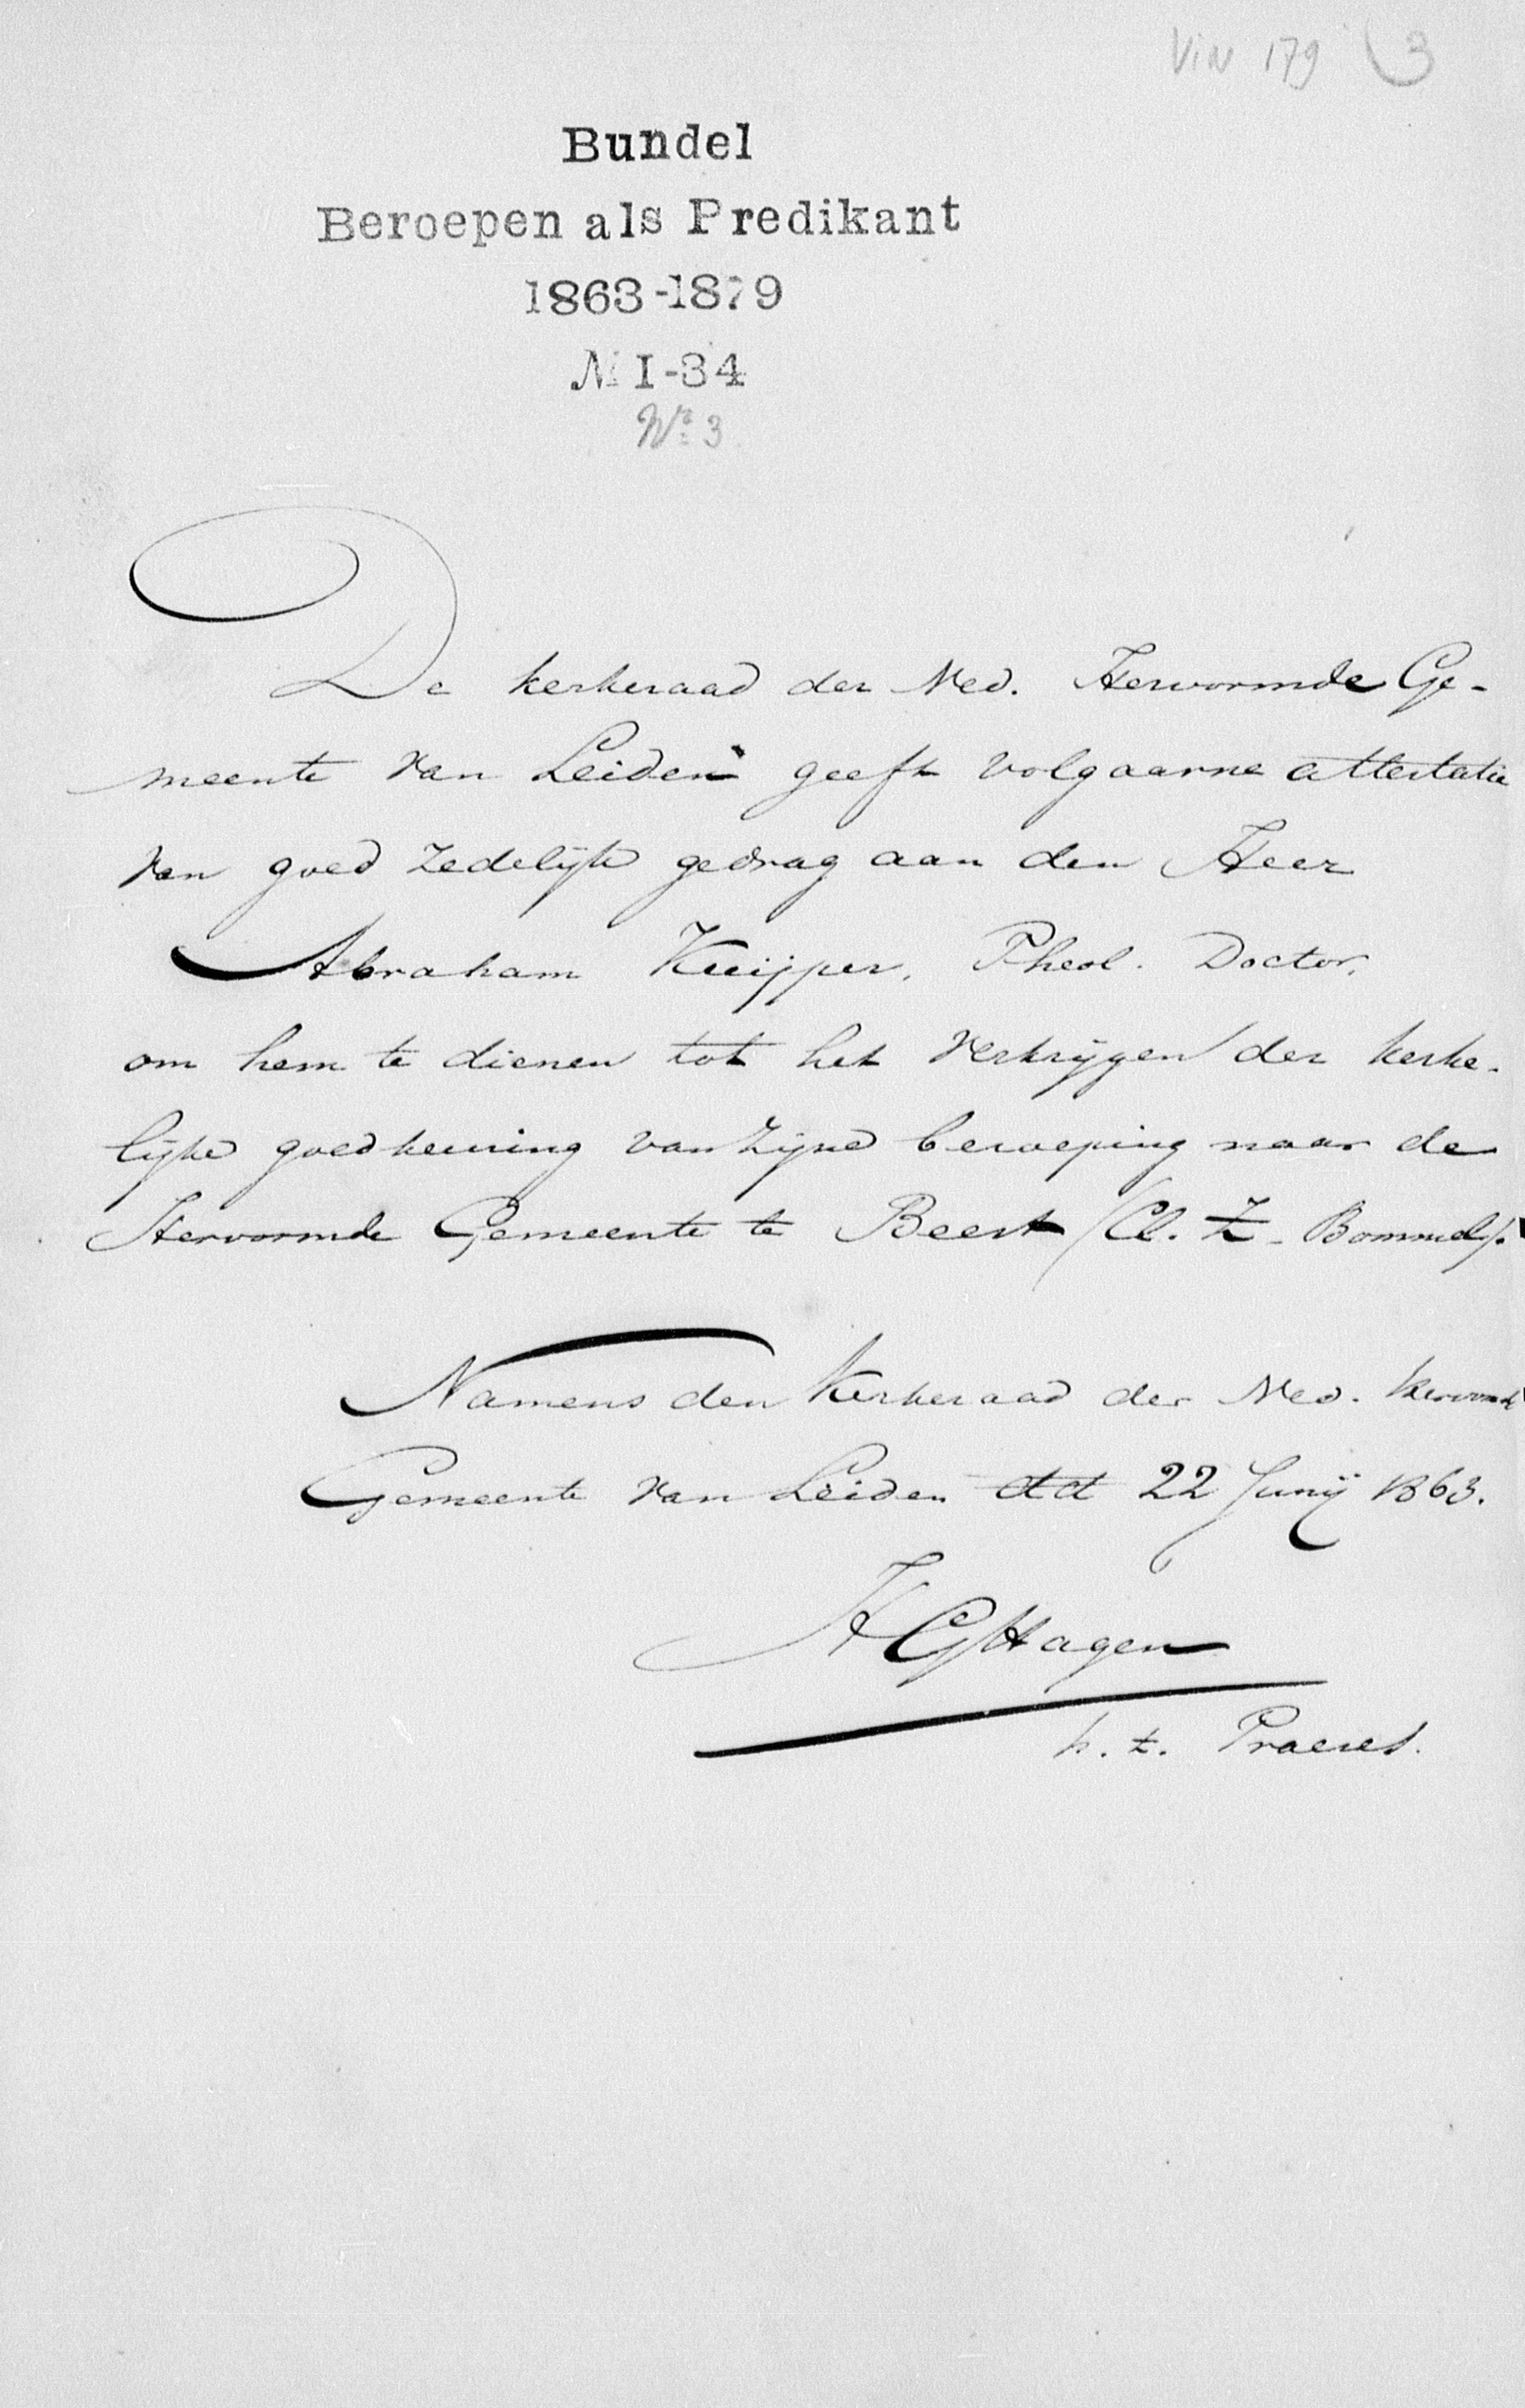 VIN 179 3
Bundel
Beroepen als Predikant
1863-1879
№ I-34
No 3
De kerkeraad der Ned. Hervormde Ge-
meente van Leiden geeft volgaarne attestatie
van goed zedelijk gedrag aan den Heer
Abraham Kuijper, Theol. Doctor,
om hem te dienen tot het verkrijgen der kerke-
lijke goedkeuring van zijne beroeping naar de
Hervormde Gemeente te Beest /Cl. Z-Bommel/.
Namens den Kerkeraad der Ned. Hervormde
Gemeente van Leiden dd 22 Junij 1863.
Hagen
h. t. Praeses.